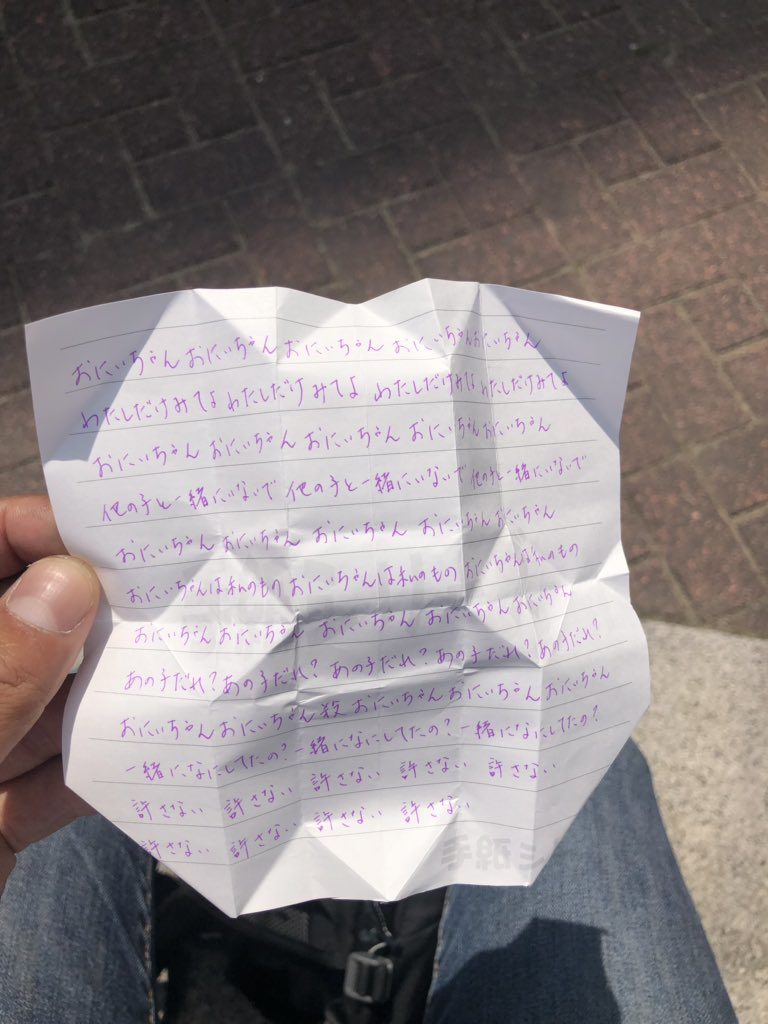 おにいちゃん おにいちゃん おにいちゃん おにいちゃん おにいちゃん
わたしだけみてよ わたしだけみてよ わたしだけみてよ わたしだけみてよ
おにいちゃん おにいちゃん おにいちゃん おにいちゃん おにいちゃん
他の子と一緒にいないで 他の子と一緒にいないで 他の子と一緒にいないで
おにいちゃん おにいちゃん おにいちゃん おにいちゃん おにいちゃん
おにいちゃんは私のもの おにいちゃんは私のもの おにいちゃんは私のもの
おにいちゃん おにいちゃん おにいちゃん おにいちゃん おにいちゃん
あの子だれ? あの子だれ? あの子だれ? あの子だれ? あの子だれ?
おにいちゃん おにいちゃん 殺 おにいちゃん おにいちゃん おにいちゃん
一緒になにしてたの? 一緒になにしてたの? 一緒になにしてたの?
許さない 許さない 許さない 許さない 許さない
許さない 許さない 許さない 許さない